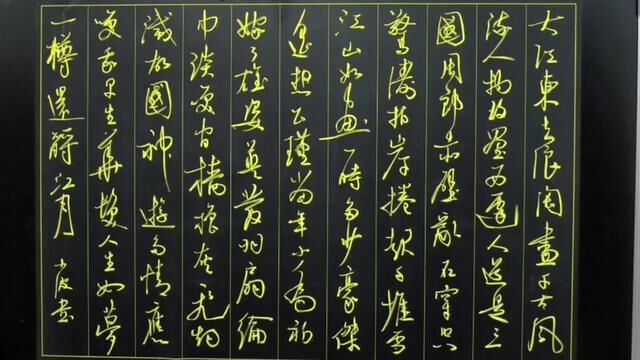 大江東去浪淘盡千古風
流人物故壘西邊人道是三
國周郎赤壁亂石穿空
驚濤拍岸捲起千堆雪
江山如畫一時多少豪傑
遙想公瑾當年小喬初
嫁了雄姿英發羽扇綸
巾談笑間檣櫓灰飛烟
滅故國神遊多情應
笑我早生華髮人生如夢
一樽還酹江月 書